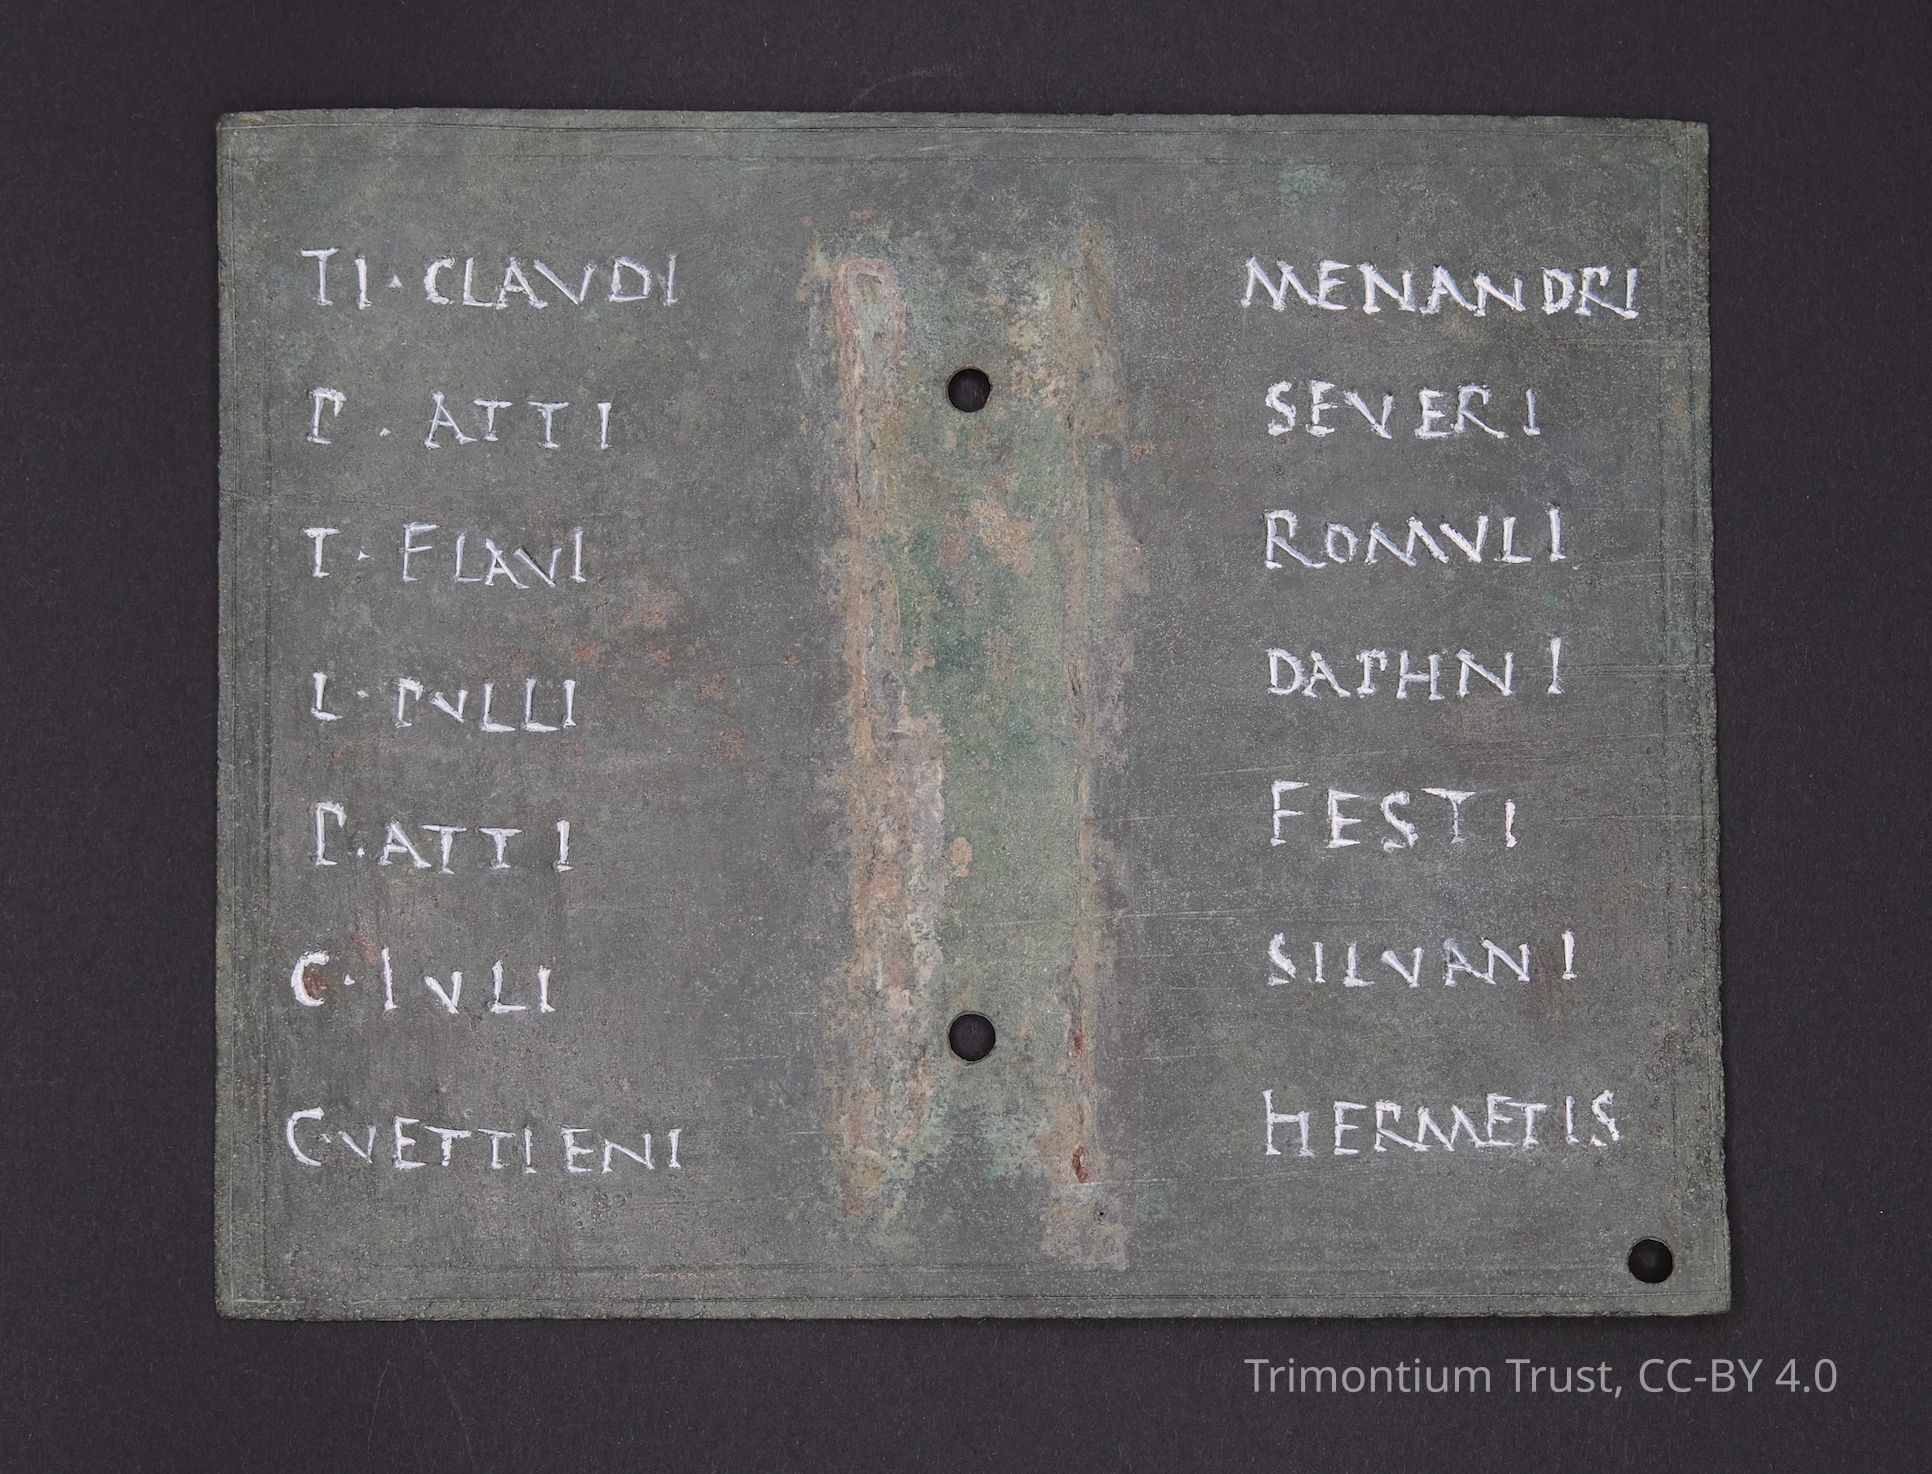 TI · CLAVDI MENANDRI
P · ATTI SEVERI
T · FLAVI ROMVLI
L · PVLLI DAPHNI
P · ATTI FESTI
C · IVLI SILVANI
C · VETTIENI HERMETIS
Trimontium Trust, CC-BY 4.0